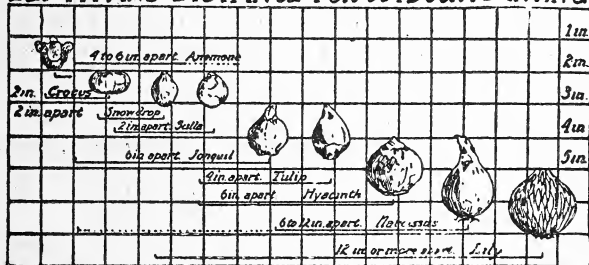 1 in.
4 to 6 in. apart Anemone
2 in.
2 in. Crocus
3 in.
2 in. apart
Snowdrop
2 in. apart Scilla
4 in.
6 in. apart Jonquil
5 in.
4 in. apart Tulip
6 in. apart Hyacinth
6 to 12 in. apart. Narcissus
12 in. or more apart. Lily